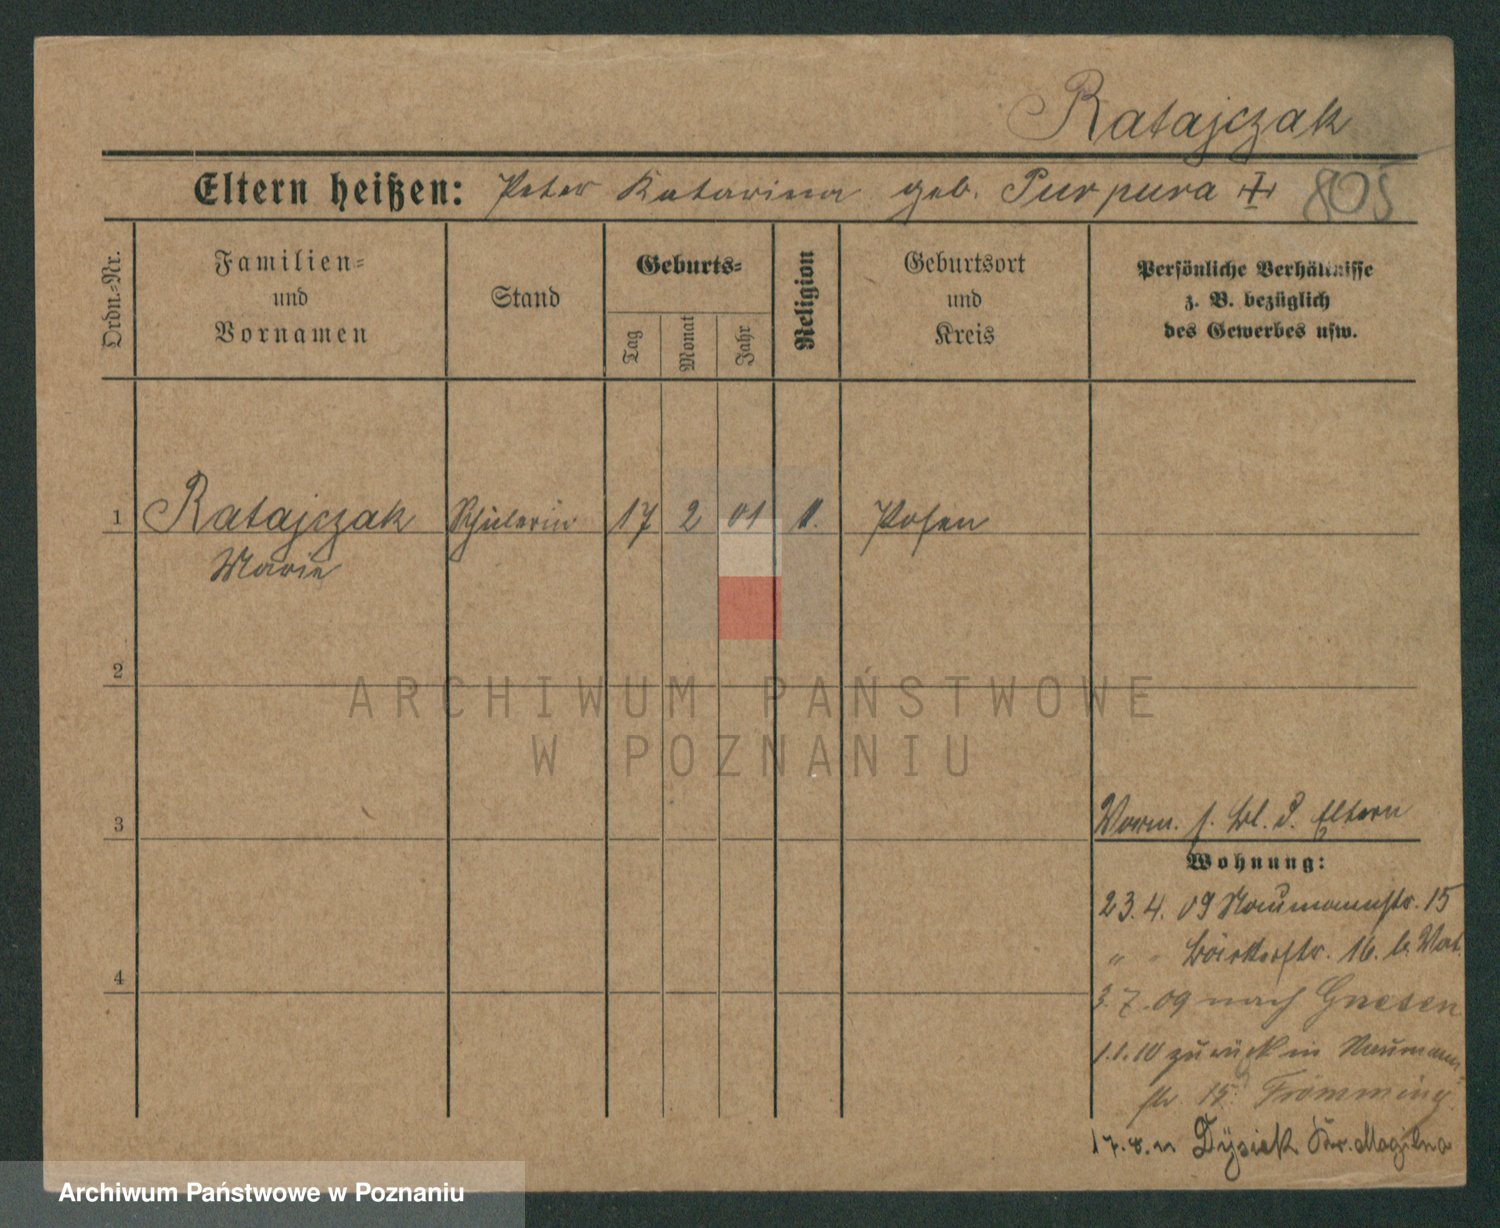 Ratajczak
Eltern heißen: Peter Katarina geb. Purpura 805
Ordn.-Nr.
Familien-
und
Vornamen
Stand
Geburts-
Tag
Monat
Jahr
Religion
Geburtsort
und
Kreis
Persönliche Verhältnisse
z. B. bezüglich
des Gewerbes usw.
1 Ratajczak Schülerin 17 2 01 Posen
Marie
2
ARCHIWUM PAŃSTWOWE
W POZNANIU
3
Vorm. s. Bl. d. Eltern
Wohnung:
23.4.09 Naumannstr. 15
" " 16. b. Vat.
4
3.7.09 nach Gnesen
1.1.10 zurück in Naumann-
str 15. Frömming
17.8.11 Dysiek Kr. Mogilno
Archiwum Państwowe w Poznaniu